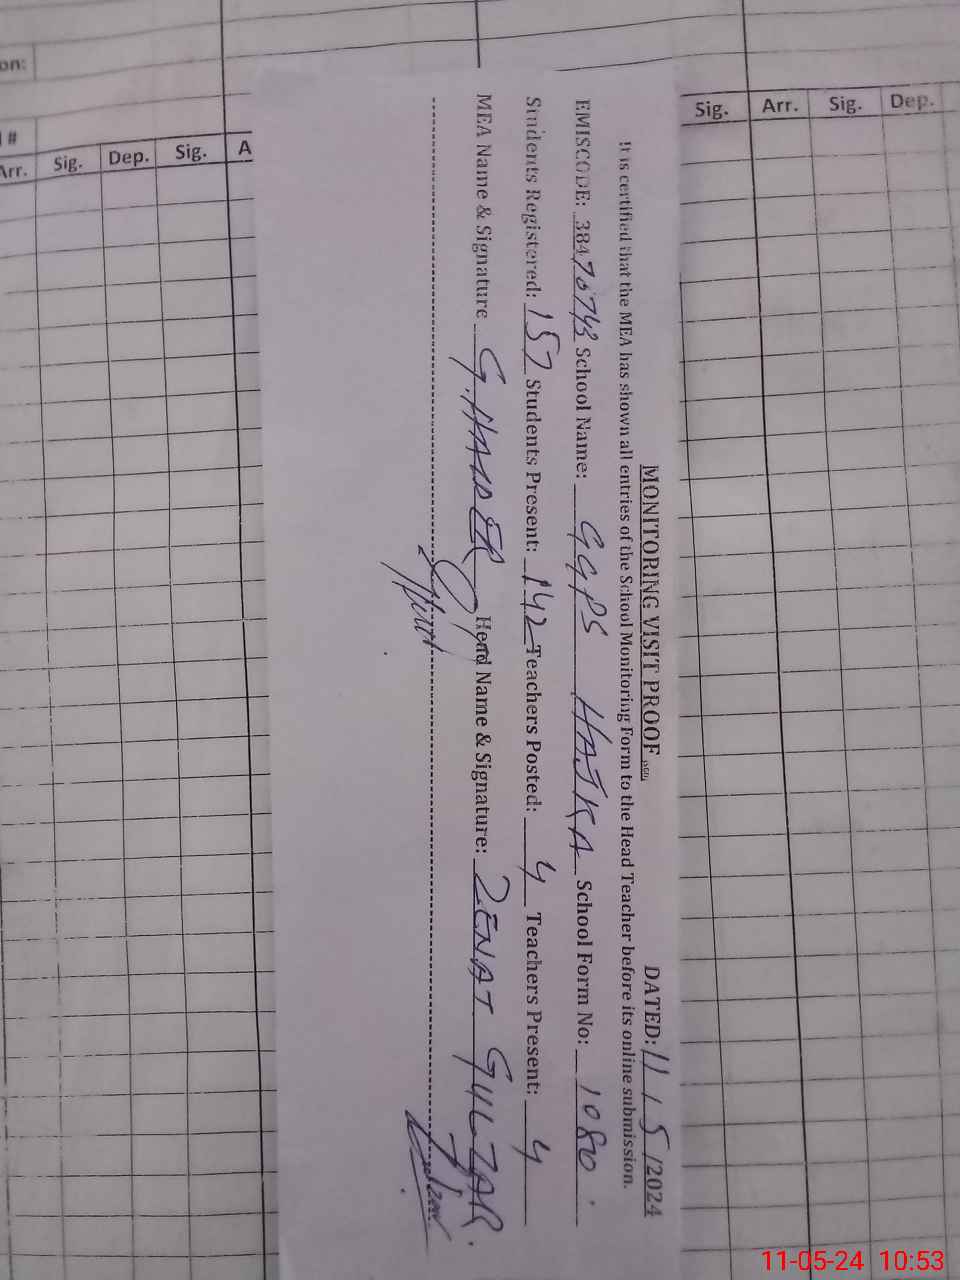 on:
#
Arr. Sig. Dep. Sig. A
Sig. Arr. Sig. Dep.
MONITORING VISIT PROOF DATED: 11/5/2024
It is certified that the MEA has shown all entries of the School Monitoring Form to the Head Teacher before its online submission.
EMISCODE: 38470743 School Name: GGPS HAJKA School Form No: 1080
Students Registered: 157 Students Present: 142 Teachers Posted: 4 Teachers Present: 4
MEA Name & Signature G.HAIDER Head Name & Signature: ZENAT GULZAR
11-05-24 10:53